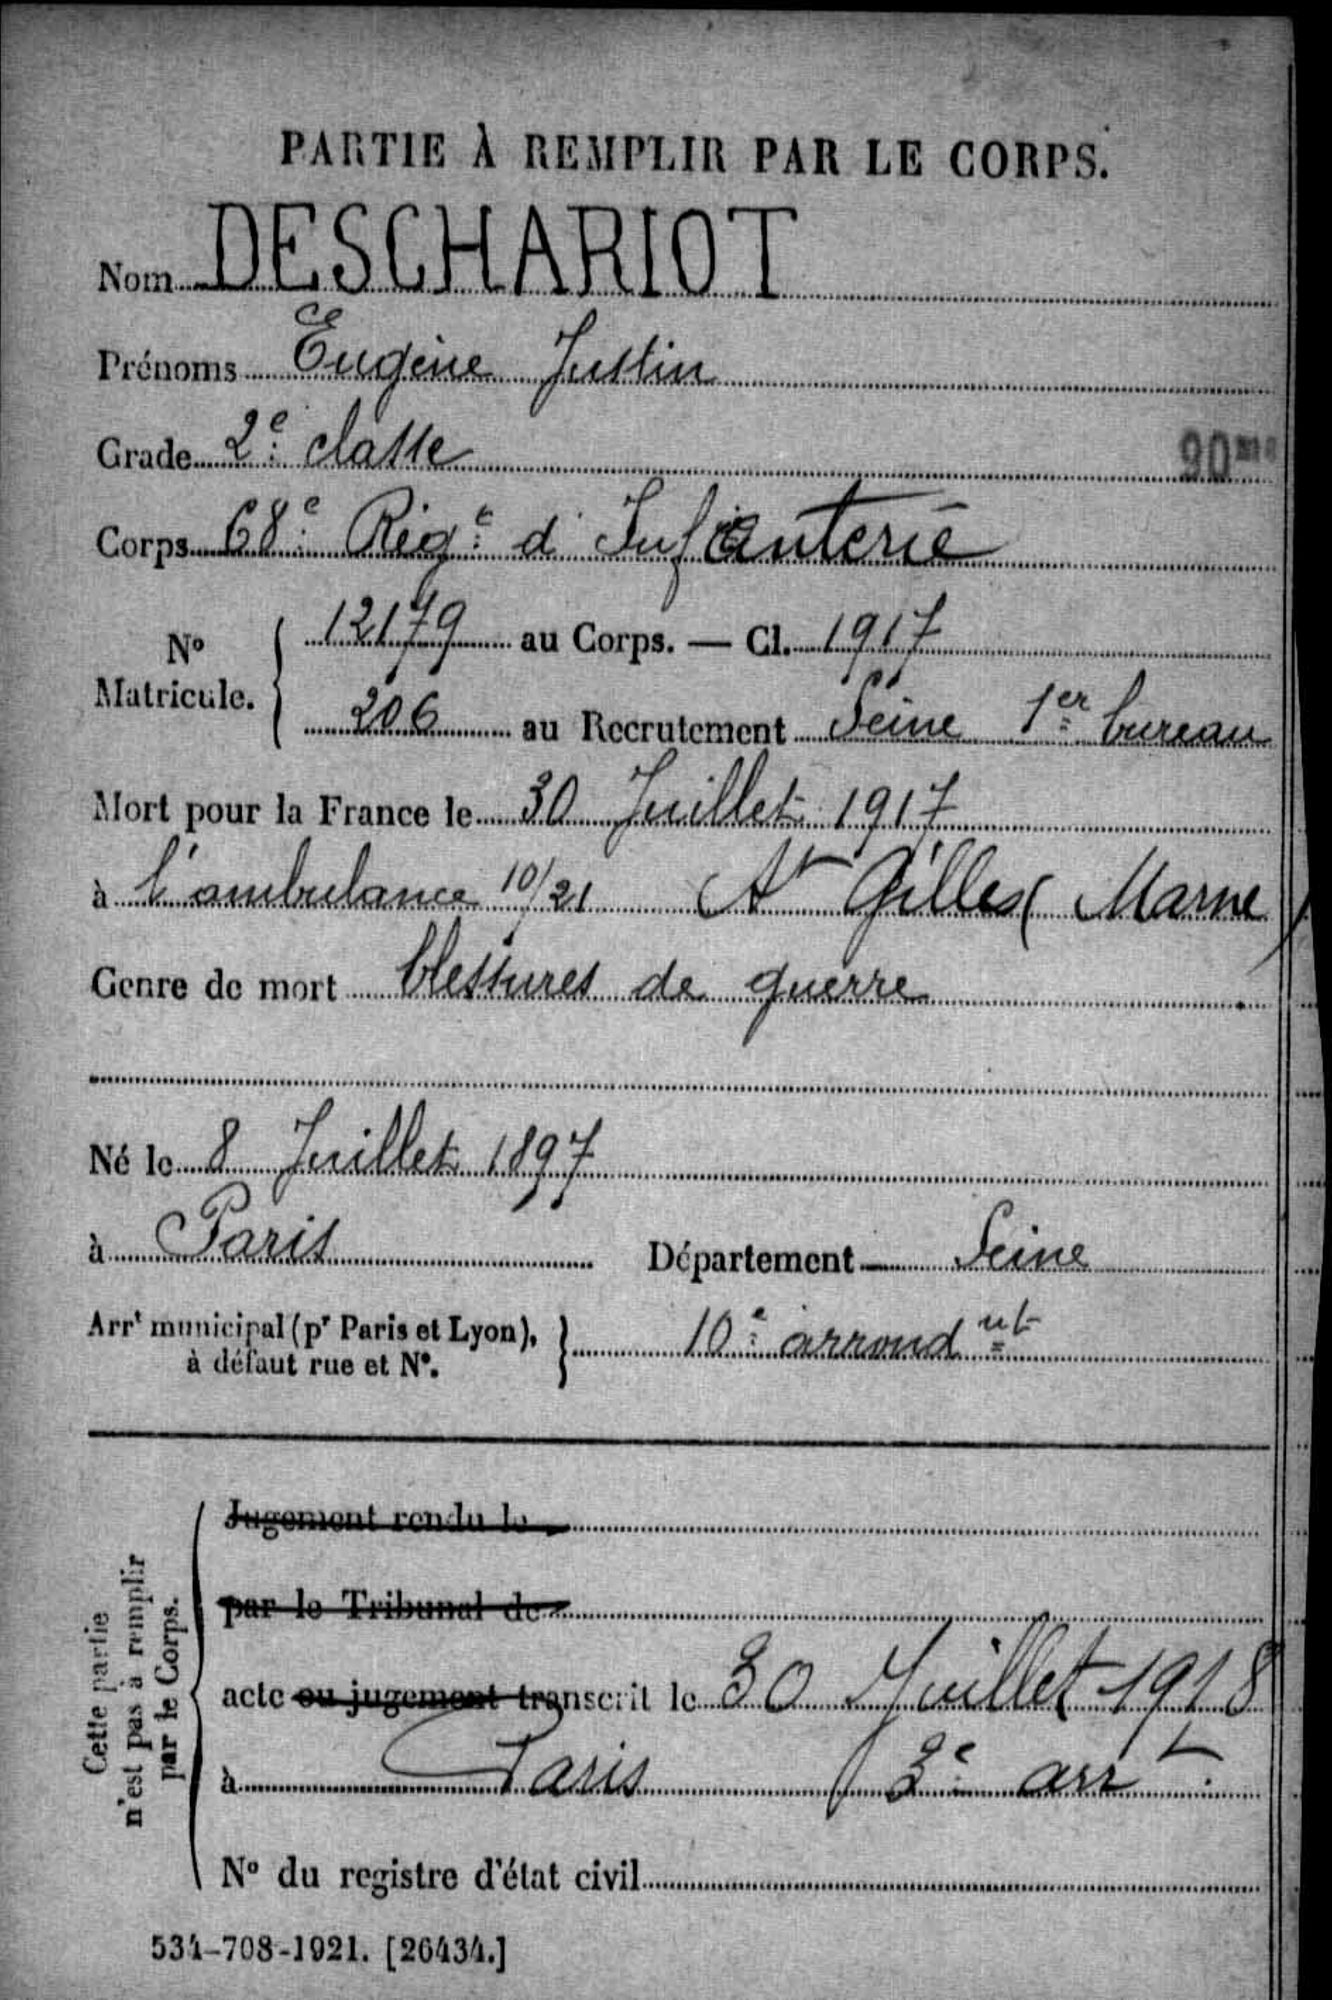 PARTIE À REMPLIR PAR LE CORPS.
Nom DESCHARIOT
Prénoms Eugène Justin
Grade 2e classe
90me
Corps 68e Régt d'Infanterie
No Matricule. 12179 au Corps. — Cl. 1917
206 au Recrutement Seine 1er bureau
Mort pour la France le 30 Juillet 1917
à l'ambulance 10/21 St Gilles (Marne)
Genre de mort blessures de guerre
Né le 8 Juillet 1897
à Paris Département Seine
Arrt municipal (pr Paris et Lyon), à défaut rue et No. 10e arrondnt
Cette partie n'est pas à remplir par le Corps.
Jugement rendu le
par le Tribunal de
acte ou jugement transcrit le 30 Juillet 1918
à Paris 3e arrt.
No du registre d'état civil
534-708-1921. [26434.]